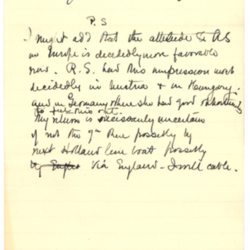 P.S
I might add that the attitude to US
in Europe is decidedly more favorable
now. R.S. had this impression most
decidedly in Austria & in Hungary.
and in Germany where she had good
to
My return is necessarily uncertain
if not the 9th then possibly by
next Holland line boat possibly
via England – I will cable.